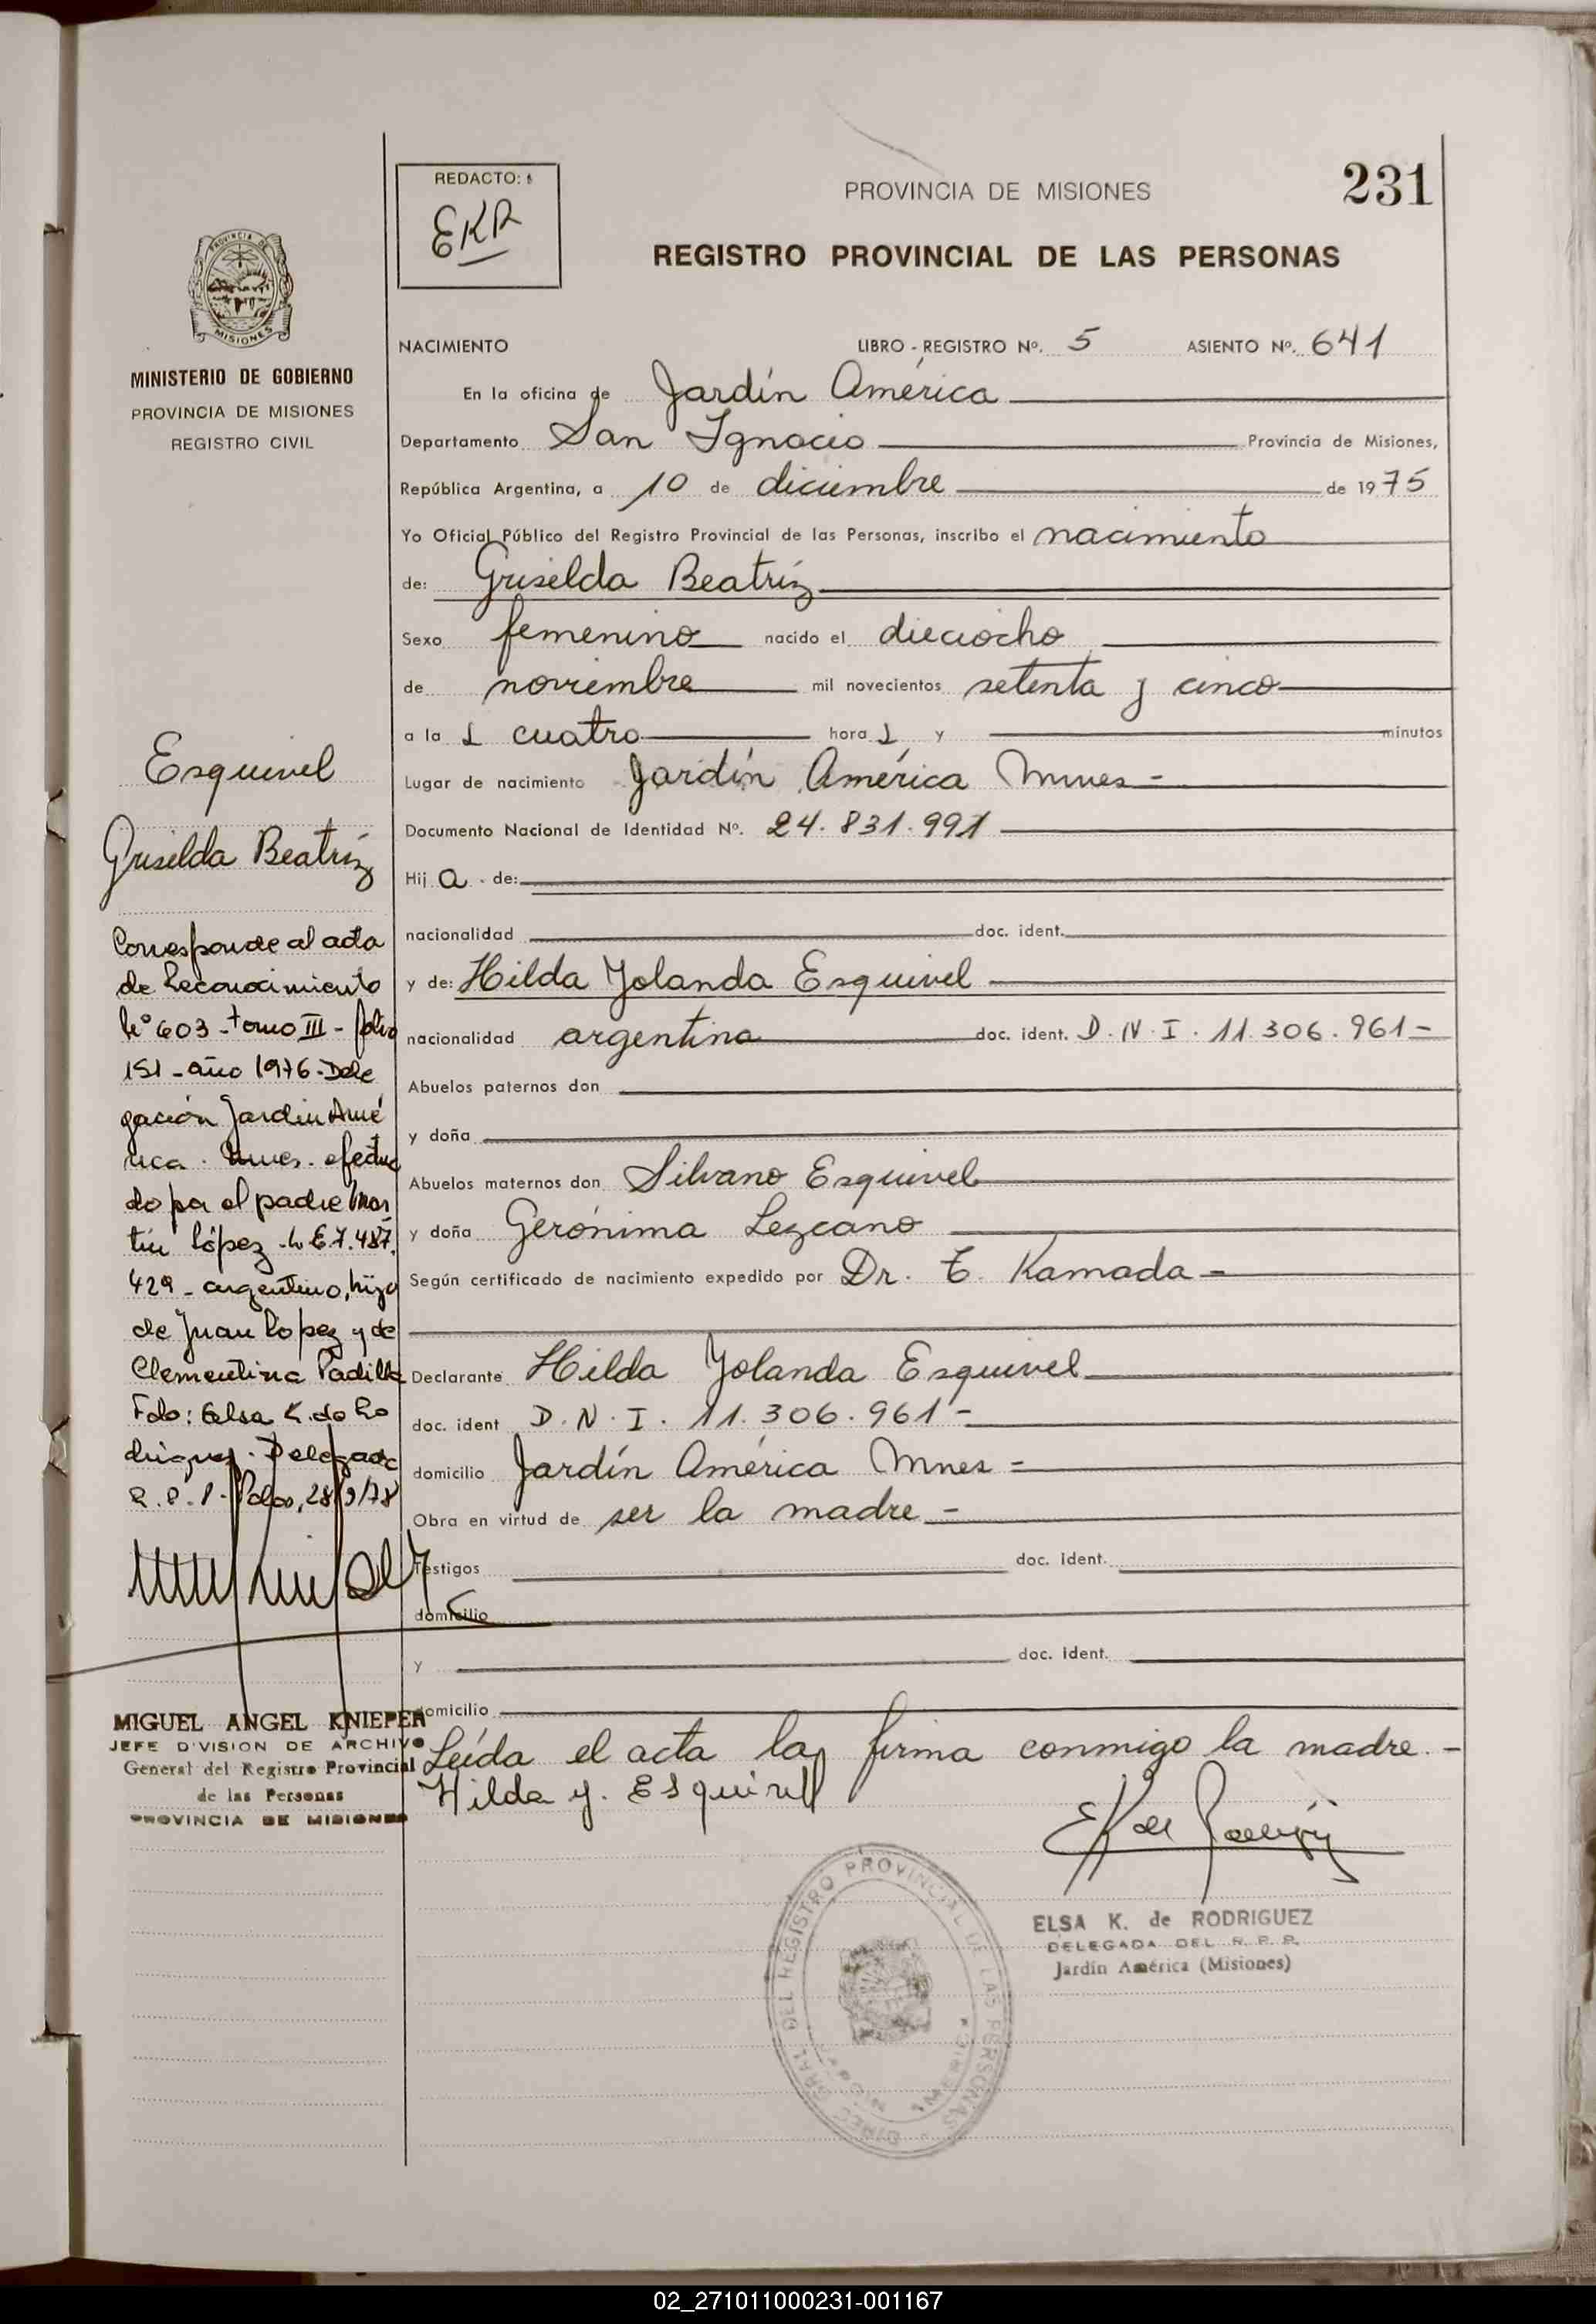 231
REDACTO:
EKR
PROVINCIA DE MISIONES
REGISTRO PROVINCIAL DE LAS PERSONAS
MINISTERIO DE GOBIERNO
PROVINCIA DE MISIONES
REGISTRO CIVIL
NACIMIENTO LIBRO - REGISTRO Nº. 5 ASIENTO Nº. 641
En la oficina de Jardín América
Departamento San Ignacio Provincia de Misiones,
República Argentina, a 10 de diciembre de 1975
Yo Oficial Público del Registro Provincial de las Personas, inscribo el nacimiento
de: Griselda Beatríz
Sexo femenino nacido el dieciocho
de noviembre mil novecientos setenta y cinco
a la s cuatro hora s y minutos
Lugar de nacimiento Jardín América Mnes -
Documento Nacional de Identidad Nº. 24.831.991
Hij a de:
nacionalidad doc. ident.
y de: Hilda Yolanda Esquivel
nacionalidad argentina doc. ident. D.N.I. 11.306.961 -
Abuelos paternos don
y doña
Abuelos maternos don Silvano Esquivel
y doña Gerónima Lezcano
Según certificado de nacimiento expedido por Dr. T. Kamada -
Declarante Hilda Yolanda Esquivel
doc. ident D.N.I. 11.306.961 -
domicilio Jardín América Mnes =
Obra en virtud de ser la madre -
Testigos doc. ident.
domicilio
y doc. ident.
domicilio
Leída el acta la firma conmigo la madre. -
Hilda Y. Esquivel
ELSA K. de RODRIGUEZ
DELEGADA DEL R. P. P.
Jardín América (Misiones)
DIREC. GRAL. DEL REGISTRO PROVINCIAL DE LAS PERSONAS
Esquivel
Griselda Beatríz
Corresponde al acta
de Reconocimiento
Nº 603 - tomo III - folio
151 - año 1976 - Dele
gación Jardín Amé
rica. Mnes. efectua
do por el padre Mar
tín López - L.E 7.487.
429 - argentino, hijo
de Juan López y de
Clementina Padilla
Fdo: Elsa K. de Ro
driguez - Delegada
R.P.P. Pdas, 28/9/78
MIGUEL ANGEL KNIEPER
JEFE DIVISION DE ARCHIVO
General del Registro Provincial
de las Personas
PROVINCIA DE MISIONES
02_271011000231-001167